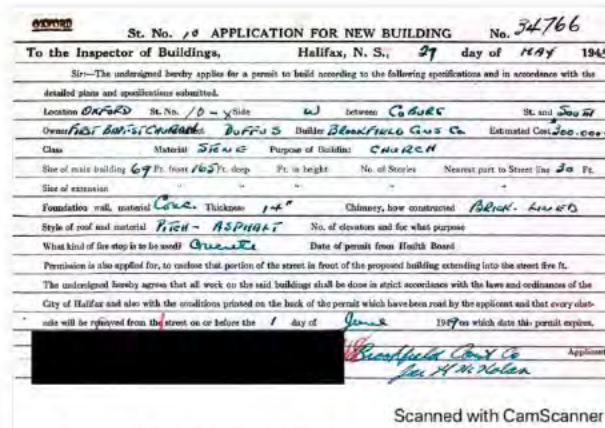 OXFORD
St. No. 10 APPLICATION FOR NEW BUILDING No. 34766
To the Inspector of Buildings, Halifax, N. S., 27 day of MAY 194
Sir:—The undersigned hereby applies for a permit to build according to the following specifications and in accordance with the
detailed plans and specifications submitted.
Location OXFORD St. No. 10 - Side W between COBURG St. and South
Owner FIRST BAPTIST CHURCH DUFFUS Builder BROOKFIELD CONS Co Estimated Cost 200.000
Class Material STONE Purpose of Building CHURCH
Size of main building 69 Ft. front 165 Ft. deep Ft. in height No. of Stories Nearest part to Street line 30 Ft.
Size of extension " " " "
Foundation wall, material Conc. Thickness 14" Chimney, how constructed BRICK-LINED
Style of roof and material PITCH - ASPHALT No. of elevators and for what purpose
What kind of fire stop is to be used? Date of permit from Health Board
Permission is also applied for, to enclose that portion of the street in front of the proposed building extending into the street five ft.
The undersigned hereby agrees that all work on the said buildings shall be done in strict accordance with the laws and ordinances of the
City of Halifax and also with the conditions printed on the back of the permit which have been read by the applicant and that every obst-
acle will be removed from the street on or before the 1 day of June 1949 on which date this permit expires.
Brookfield Const Co Applicant
Scanned with CamScanner